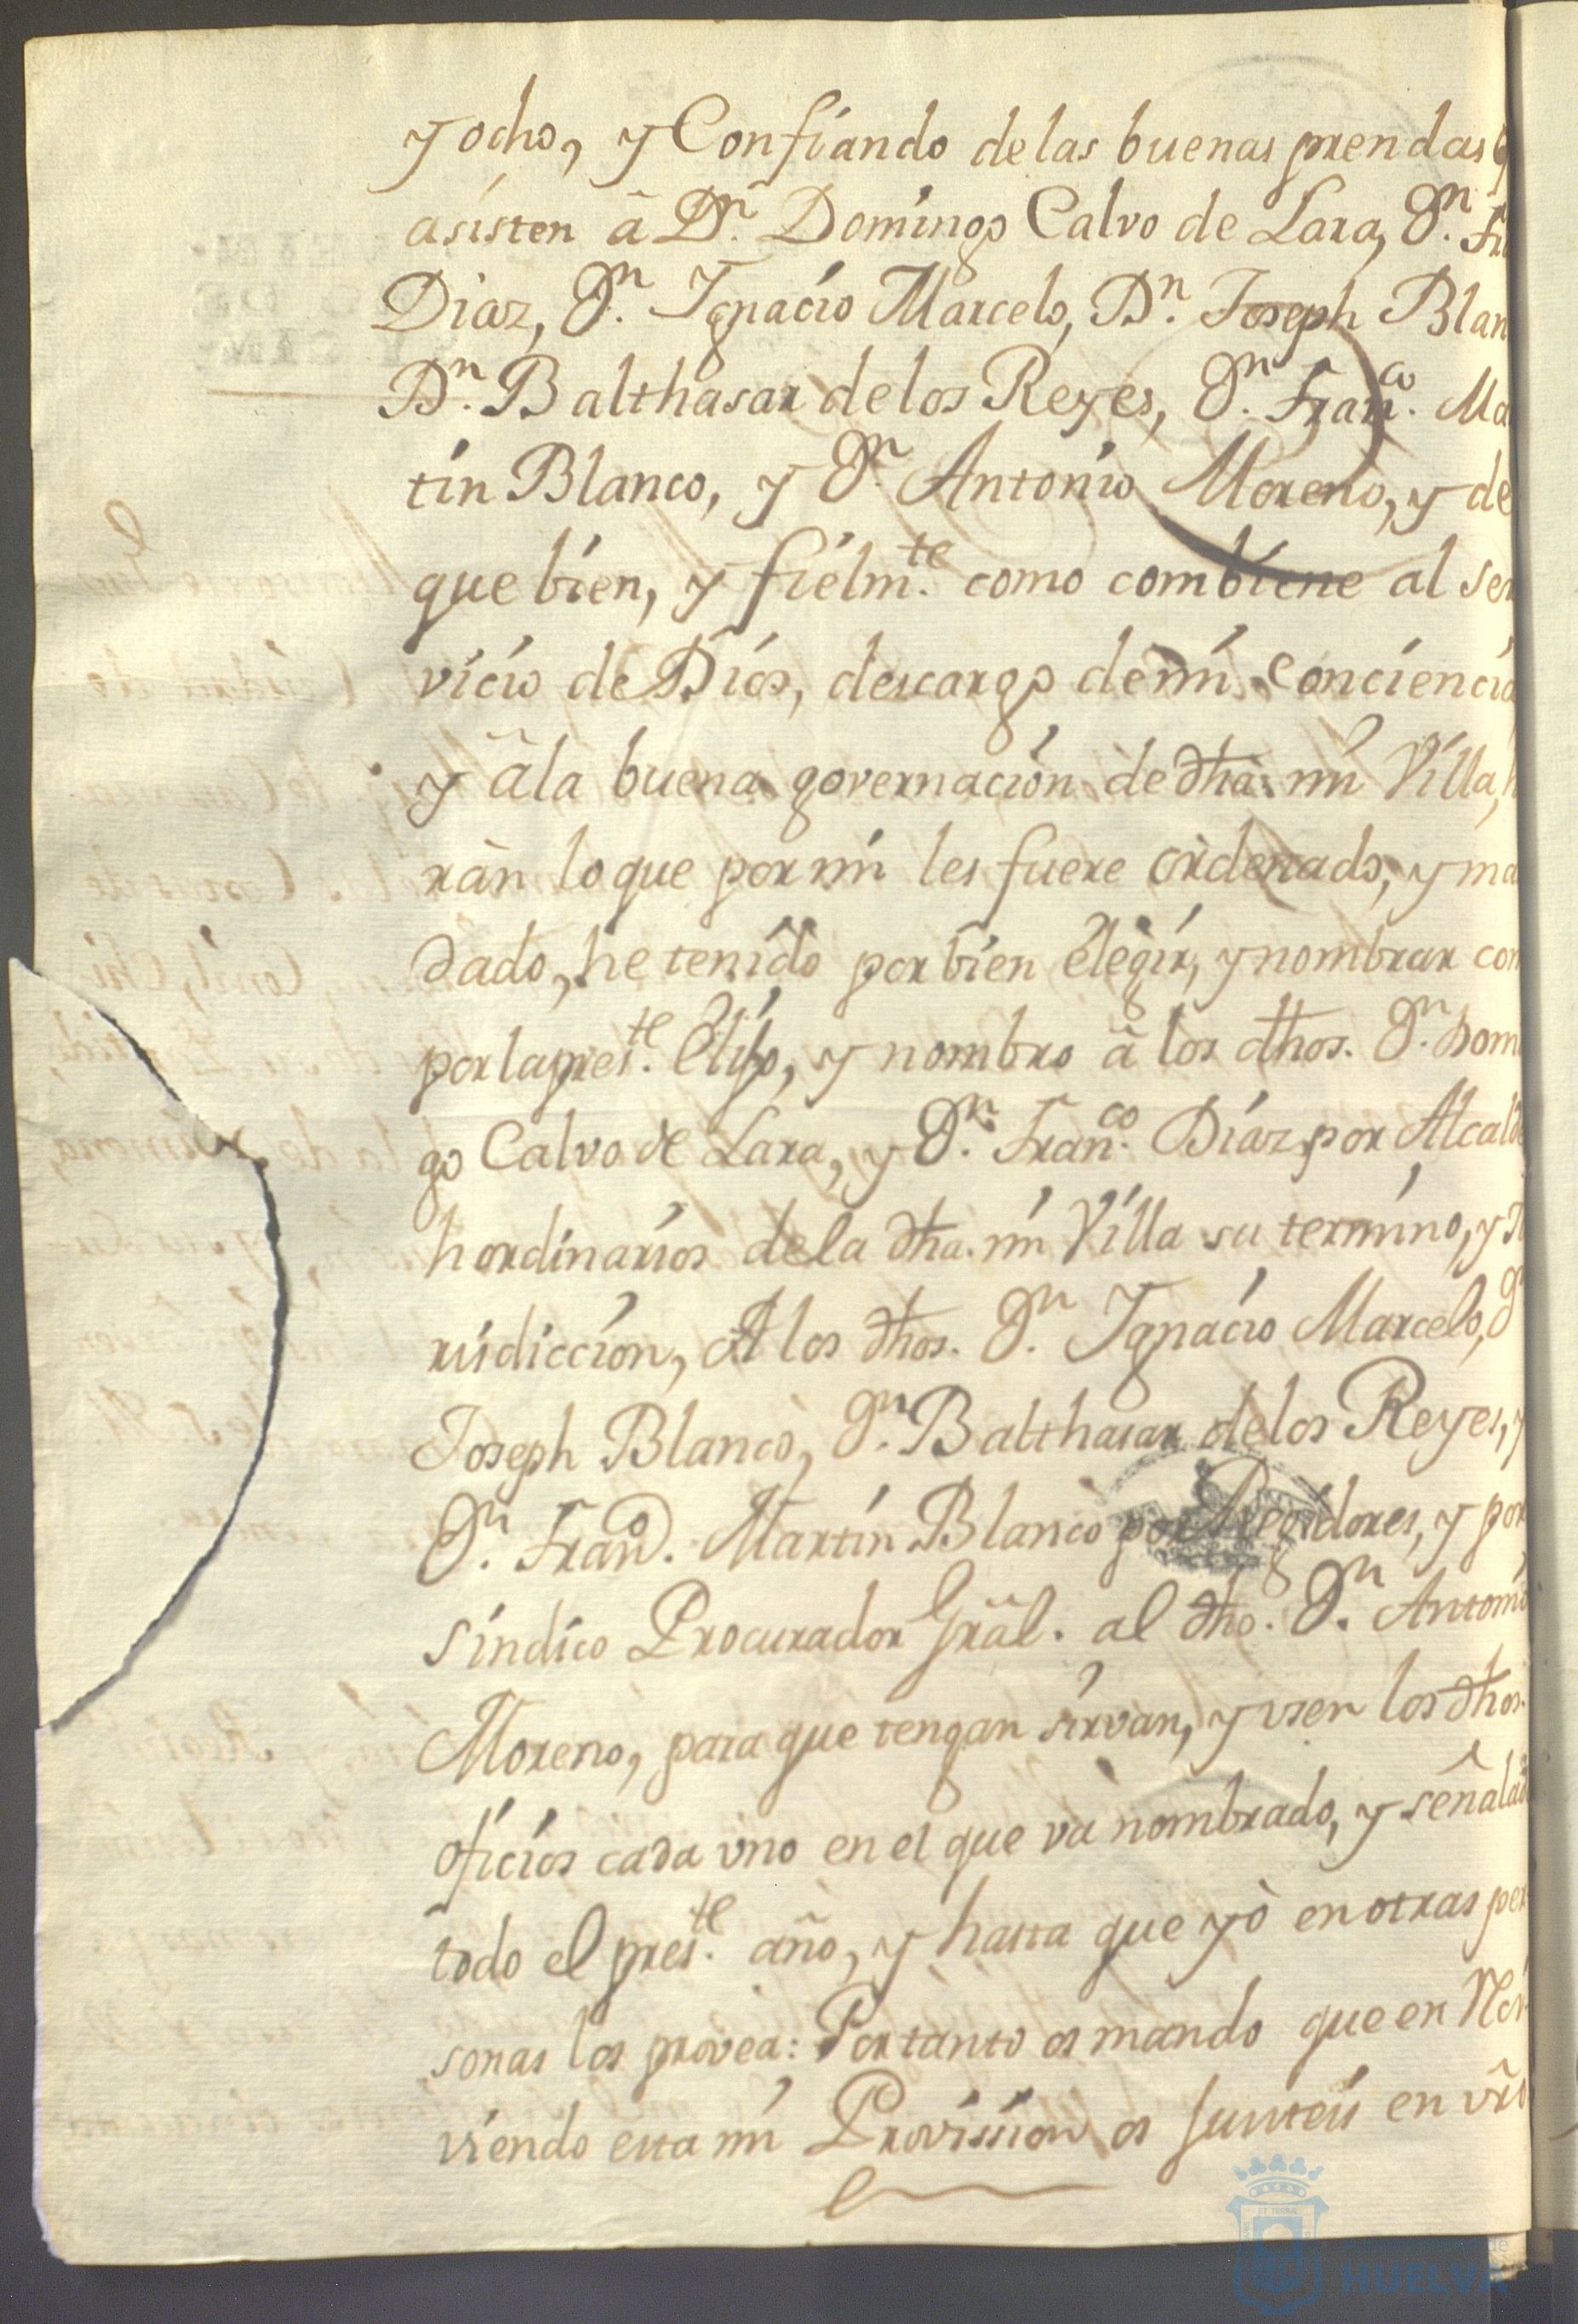 y ocho, y Confiando de las buenas prendas q
asisten â Dn. Domingo Calvo de Lara, Dn. Fr
Diaz, Dn. Ignacio Marcelo, Dn. Joseph Blan
Dn. Balthasar de los Reyes, Dn. Franco. Ma
tin Blanco, y Dn. Antonio Moreno, y de
que bien, y fielmte. como combiene al ser
vicio de Dios, descargo de mi conciencia
y âla buena governación de dha. mi Villa, h
ràn lo que por mi les fuere ordenado, y ma
dado, he tenido por bien elegir, y nombrar com
por la preste. Elijo, y nombro â los dhos. Dn. Domi
go Calvo de Lara, y Dn. Franco. Diaz por Alcalde
hordinarios de la dha. mi Villa su termino, y Ju
risdiccion, A los dhos. Dn. Ignacio Marcelo, Dn
Joseph Blanco, Dn. Balthasar de los Reyes, y
Dn. Franco. Martin Blanco por Regidores, y por
sindico Procurador Grãl. al dho. Dn. Antonio
Moreno, para que tengan sirvan, y usen los dhos.
oficios cada vno en el que và nombrado, y señalado
todo el preste. año, y hasta que yò en otras per
sonas los provea: Portanto os mando que en
viendo esta mi Provission os Junteis en vro
HUELVA